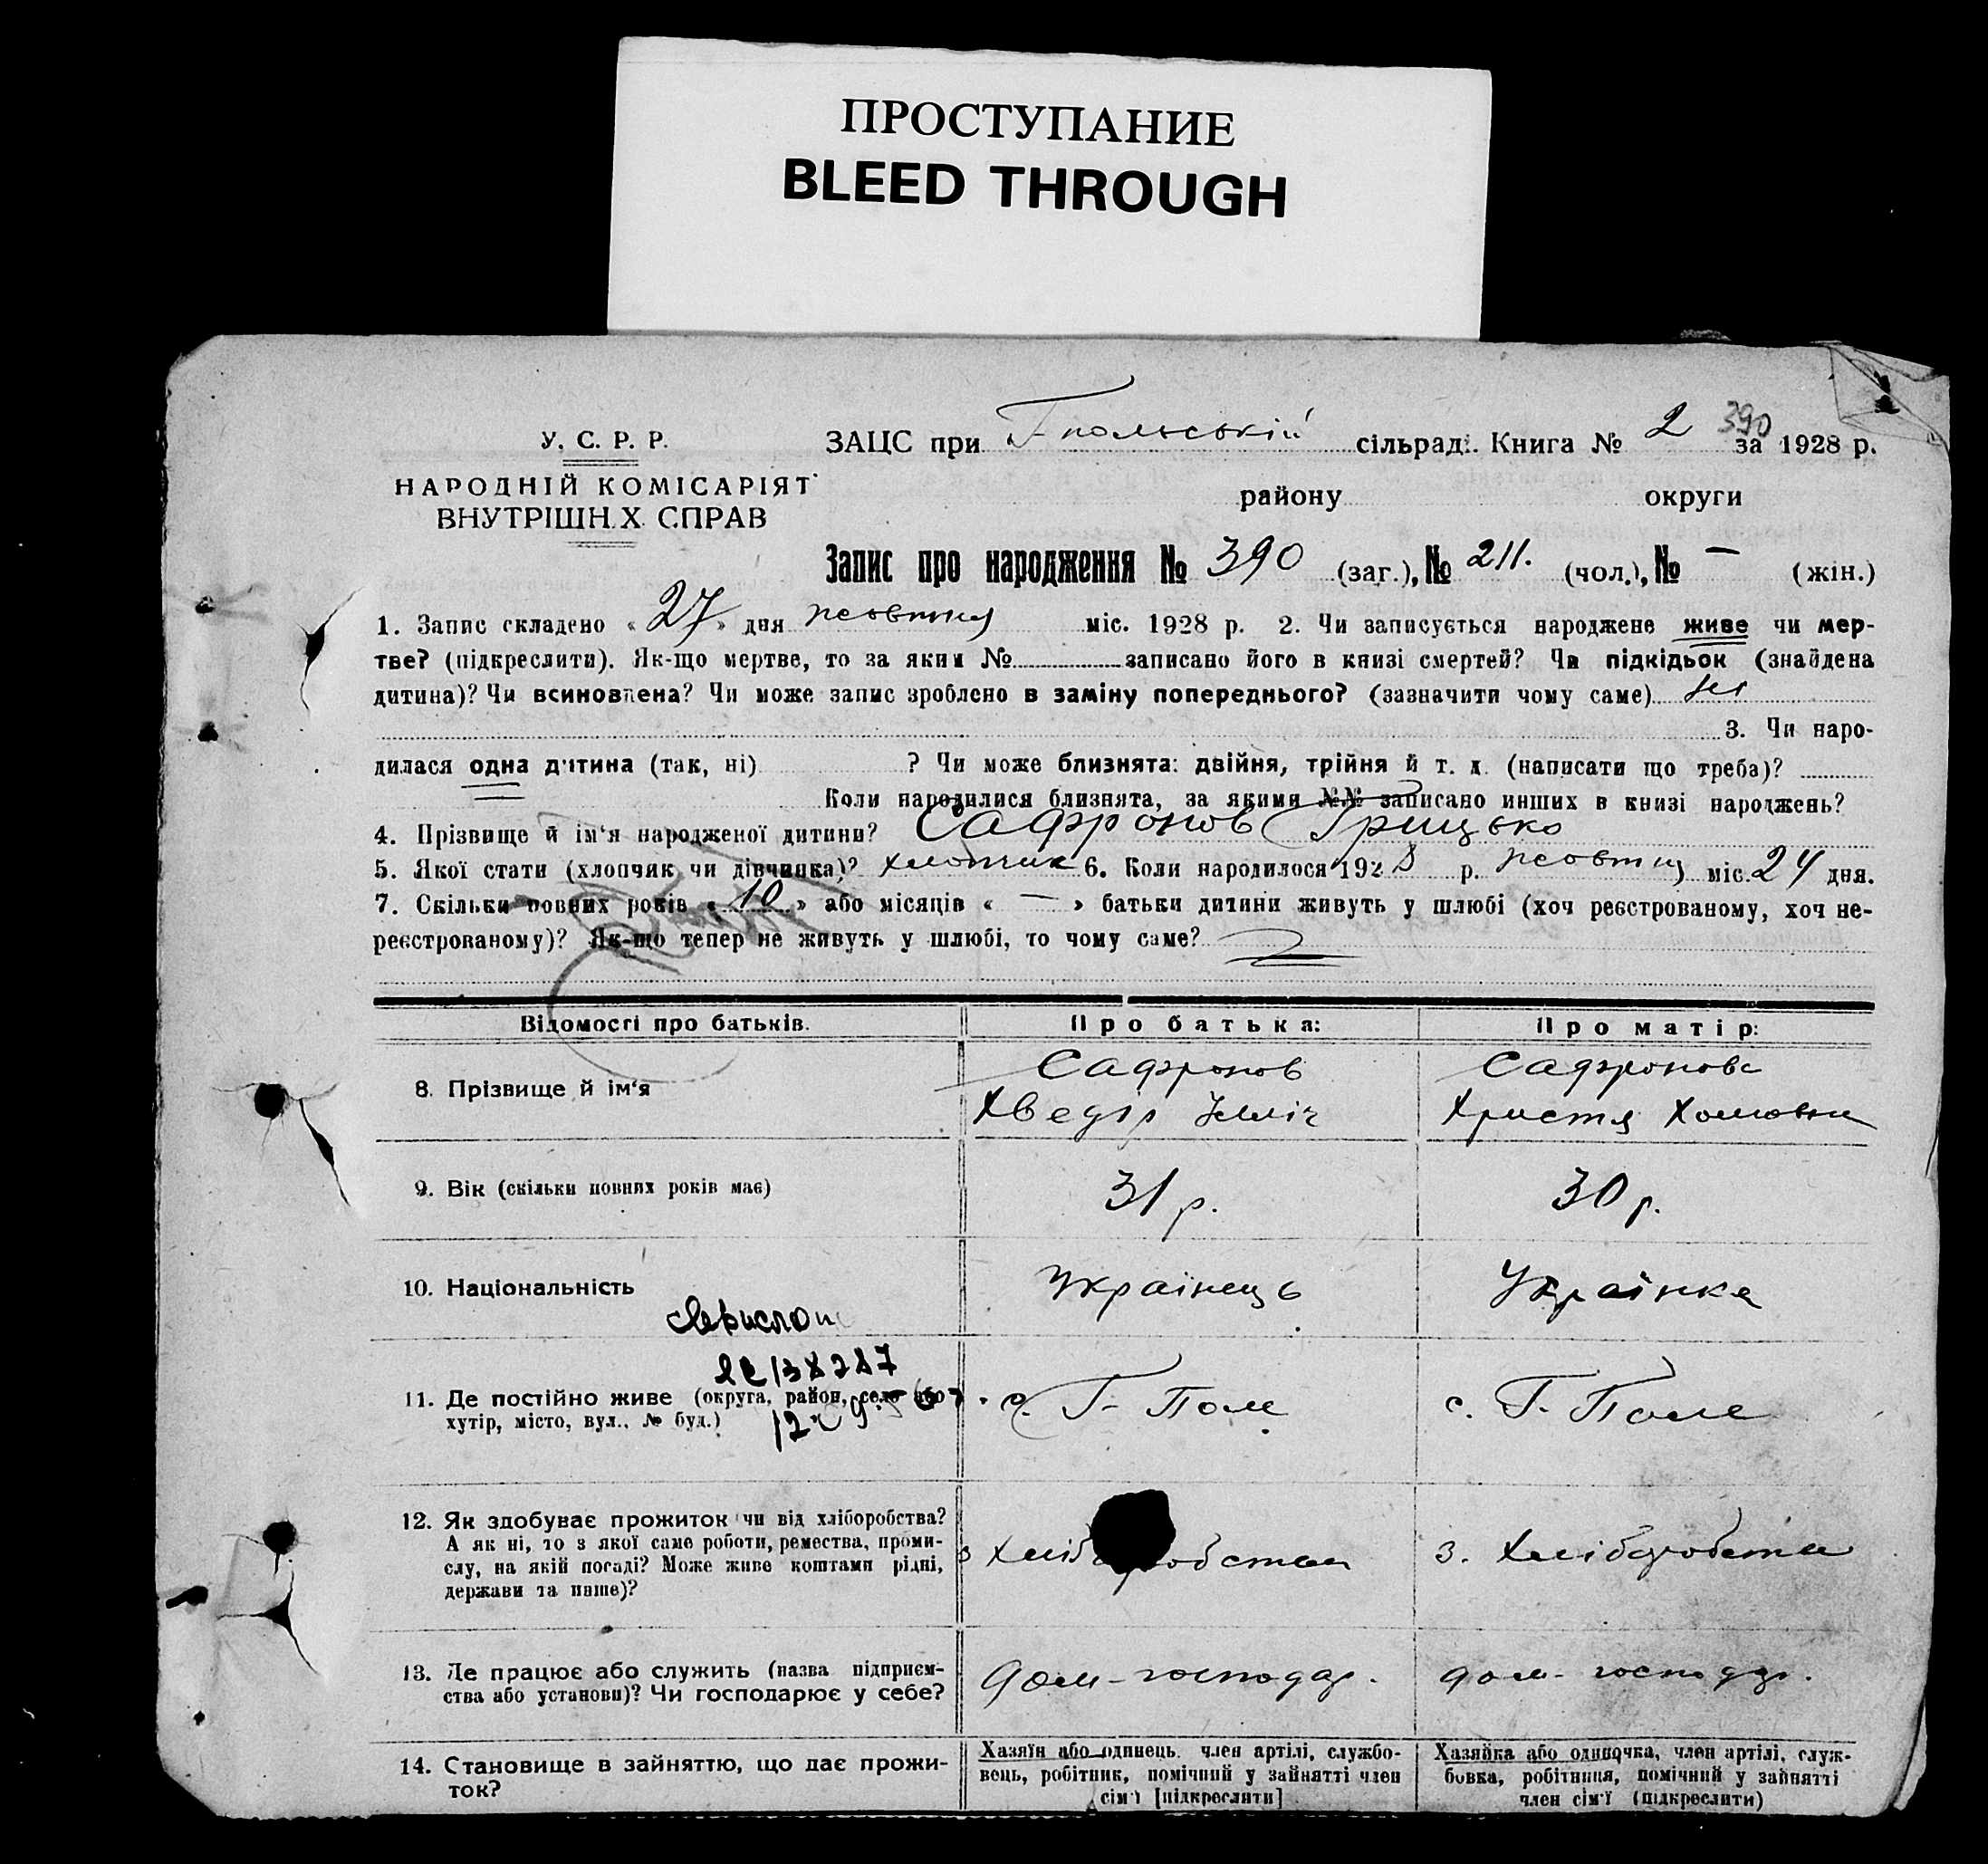 ПРОСТУПАНИЕ
BLEED THROUGH
390
У. С. Р. Р.
НАРОДНІЙ КОМІСАРІЯТ
ВНУТРІШН.Х СПРАВ
ЗАЦС при Г-польській сільраді. Книга № 2 за 1928 р.
району округи
Запис про народження № 390 (заг.), № 211. (чол.), № — (жін.)
1. Запис складено « 27 » дня жовтня міс. 1928 р. 2. Чи записується народжене живе чи мер-
тве? (підкреслити). Як-що мертве, то за яким № записано його в книзі смертей? Чи підкідьок (знайдена
дитина)? Чи всиновлена? Чи може запис зроблено в заміну попереднього? (зазначити чому саме)
3. Чи наро-
дилася одна дитина (так, ні) ? Чи може близнята: двійня, трійня й т. д. (написати що треба)?
Коли народилися близнята, за якими №№ записано инших в книзі народжень?
4. Прізвище й ім'я народженої дитини? Сафронов Грицько
5. Якої стати (хлопчик чи дівчинка)? хлопчик 6. Коли народилося 1928 р. жовтня міс. 24 дня.
7. Скільки повних років « 10 » або місяців « — » батьки дитини живуть у шлюбі (хоч реєстрованому, хоч не-
реєстрованому)? Як-що тепер не живуть у шлюбі, то чому саме?
Відомості про батьків. Про батька: Про матір:
8. Прізвище й ім'я
Сафронов
Хведір Ілліч
Сафронова
Христя Хомовна
9. Вік (скільки повних років має) 31 р. 30 р.
10. Національність Українець Українка
11. Де постійно живе (округа, район, село або
хутір, місто, вул., № буд.)
с. Г- Поле с. Г. Поле
12. Як здобуває прожиток чи від хліборобства?
А як ні, то з якої саме роботи, ремества, проми-
слу, на якій посаді? Може живе коштами рідні,
держави та инше)?
з хліборобства з. хліборобства
13. Де працює або служить (назва підприєм-
ства або установи)? Чи господарює у себе?
дом-господар. дом-господар.
14. Становище в зайняттю, що дає прожи-
ток?
Хазяїн або одинець, член артілі, службо-
вець, робітник, помічний у зайнятті член
сім'ї [підкреслити]
Хазяйка або одиночка, член артілі, служ-
бовка, робітниця, помічний у зайнятті
член сім'ї (підкреслити)